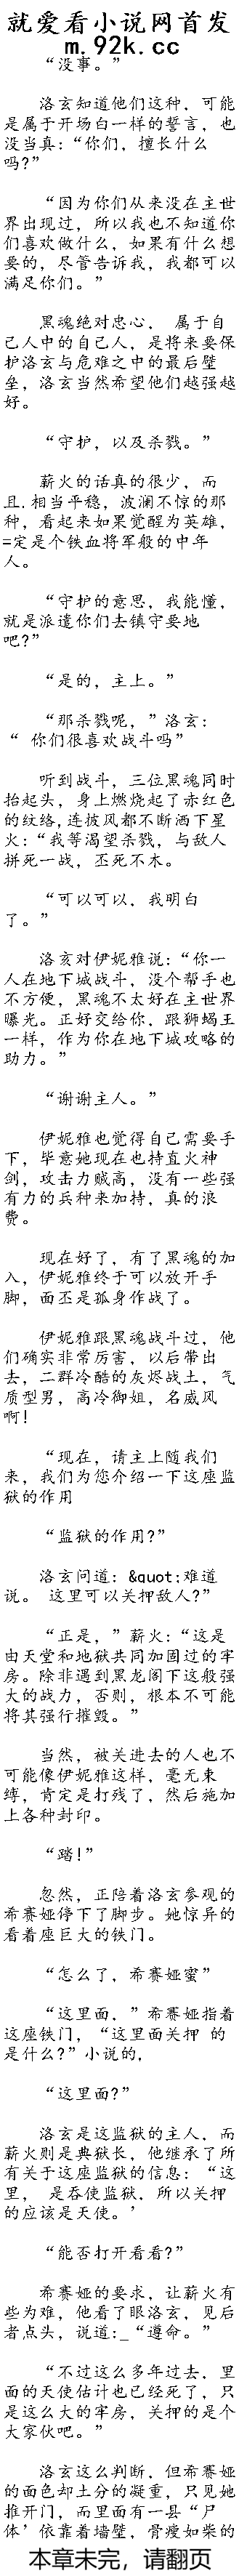 就爱看小说网首发
m.92k.cc
“没事。”
洛玄知道他们这种，可能
是属于开场白一样的誓言，也
没当真：“你们，擅长什么
吗?”
“因为你们从来没在主世
界出现过，所以我也不知道你
们喜欢做什么，如果有什么想
要的，尽管告诉我，我都可以
满足你们。”
黑魂绝对忠心， 属于自
己人中的自己人，是将来要保
护洛玄与危难之中的最后壁
垒，洛玄当然希望他们越强越
好。
“守护，以及杀戮。”
薪火的话真的很少，而
且.相当平稳，波澜不惊的那
种，看起来如果觉醒为英雄，
=定是个铁血将军般的中年
人。
“守护的意思，我能懂，
就是派遣你们去镇守要地
吧?”
“是的，主上。”
“那杀戮呢，”洛玄：
“ 你们很喜欢战斗吗”
听到战斗，三位黑魂同时
抬起头，身上燃烧起了赤红色
的纹络,连披风都不断洒下星
火：“我等渴望杀戮，与敌人
拼死一战，丕死不木。
“可以可以，我明白
了。”
洛玄对伊妮雅说：“你一
人在地下城战斗，没个帮手也
不方便，黑魂不太好在主世界
曝光。正好交给你，跟狮蝎王
一样，作为你在地下城攻略的
助力。”
“谢谢主人。”
伊妮雅也觉得自己需要手
下，毕意她现在也持直火神
剑，攻击力贼高，没有一些强
有力的兵种来加持，真的浪
费。
现在好了，有了黑魂的加
入，伊妮雅终于可以放开手
脚，面丕是孤身作战了。
伊妮雅跟黑魂战斗过，他
们确实非常厉害，以后带出
去，二群冷酷的灰烬战土，气
质型男，高冷御姐，名威风
啊!
“现在，请主上随我们
来，我们为您介绍一下这座监
狱的作用
“监狱的作用?”
洛玄问道：&quot;难道
说。 这里可以关押敌人?”
“正是，”薪火:“这是
由天堂和地狱共同加固过的牢
房。除非遇到黑龙阁下这般强
大的战力，否则，根本不可能
将其强行摧毁。”
当然，被关进去的人也不
可能像伊妮雅这样，毫无束
缚，肯定是打残了，然后施加
上各种封印。
“踏!”
忽然，正陪着洛玄参观的
希赛娅停下了脚步。她惊异的
看着座巨大的铁门。
“怎么了，希赛娅蜜”
“这里面，”希赛娅指着
这座铁门，“这里面关押 的
是什么?”小说的，
“这里面?”
洛玄是这监狱的主人，而
薪火则是典狱长，他继承了所
有关于这座监狱的信息：“这
里， 是吞使监狱，所以关押
的应该是天使。’
“能否打开看看?”
希赛娅的要求，让薪火有
些为难，他看了眼洛玄，见后
者点头，说道:_“遵命。”
“不过这么多年过去，里
面的天使估计也已经死了，只
是这么大的牢房，关押的是个
大家伙吧。”
洛玄这么判断，但希赛娅
的面色却土分的凝重，只见她
推开门，而里面有一县“尸
体’依靠着墙壁，骨瘦如柴的
本章未完，请翻页